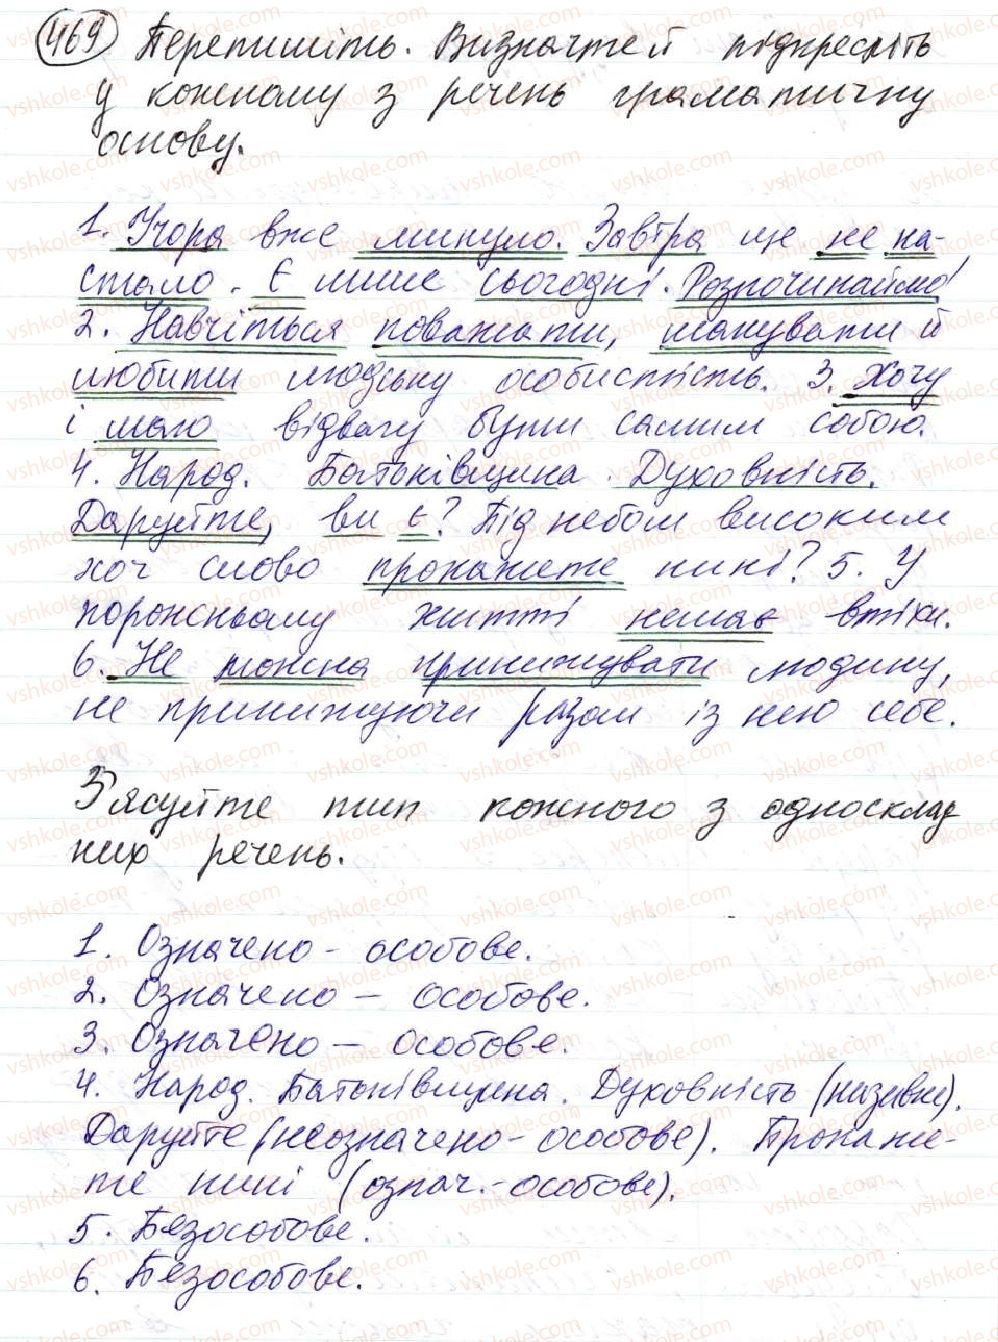 469 Перепишіть. Визначте й підкресліть
у кожному з речень граматичну
основу.
1. Учора вже минуло. Завтра ще не на-
стало. Є лише сьогодні. Розпочинаймо!
2. Навчіться поважати, шанувати й
любити людську особистість. 3. Хочу
і маю відвагу бути самим собою.
4. Народ. Батьківщина. Духовність.
Даруйте, ви є? Під небом високим
хоч слово прокажете нині? 5. У
порожньому житті немає втіхи.
6. Не можна принижувати людину,
не принижуючи разом із нею себе.
З'ясуйте тип кожного з односклад
них речень.
1. Означено - особове.
2. Означено - особове.
3. Означено - особове.
4. Народ. Батьківщина. Духовність (називні).
Даруйте (неозначено - особове). Прокаже-
те нині (означ.-особове).
5. Безособове.
6. Безособове.